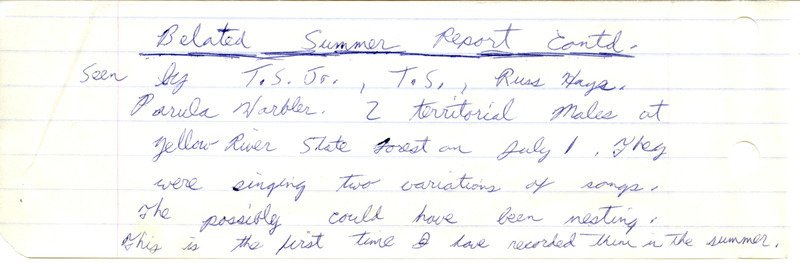 Belated Summer Report Contd.
Seen by T.S. Jr., T.S., Russ Hays.
Parula Warbler. 2 territorial males at
Yellow River State Forest on July 1. They
were singing two variations of songs.
The possibly could have been nesting.
This is the first time I have recorded them in the summer.